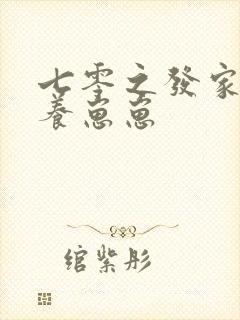 七零之發家
養崽崽
綰紫彤